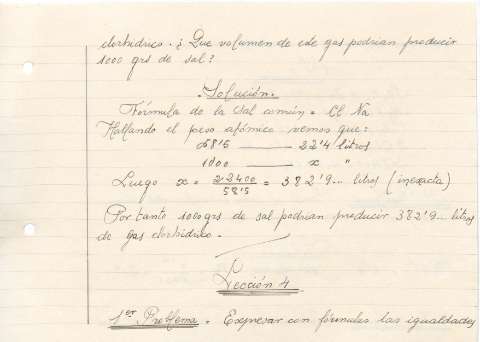 clorhidrico. ¿Que volumen de ese gas podrian producir
1000 grs de sal?
Solución.
Fórmula de la sal común = Cl Na
Hallando el peso atómico vemos que:
58'5 ——— 22'4 litros
1000 ——— x "
Luego x = 22400 / 58'5 = 382'9... litros (inexacta)
Por tanto 1000 grs de sal podrian producir 382'9... litros
de gas clorhidrico.
Lección 4
1er Problema = Expresar con fórmulas las igualdades